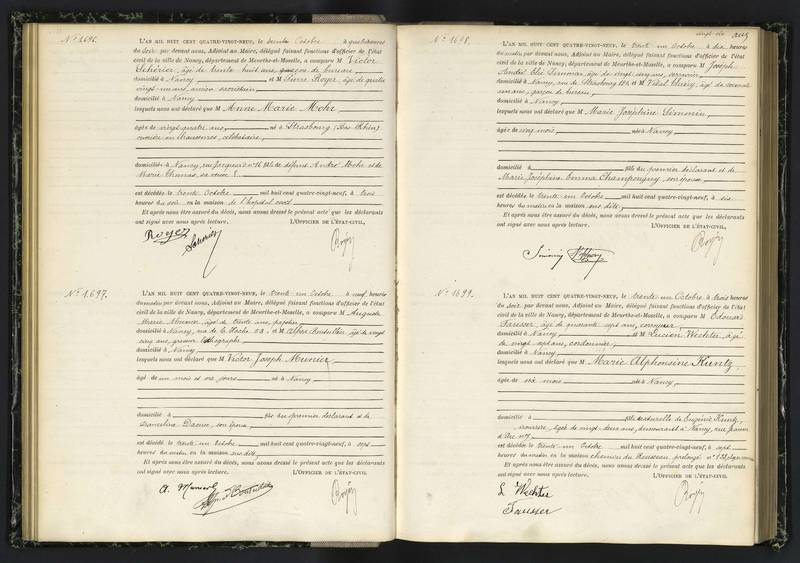 N° 1696.
L'AN MIL HUIT CENT QUATRE-VINGT-NEUF, le trente Octobre à quatre heures
du soir par devant nous, Adjoint au Maire, délégué faisant fonctions d'officier de l'état
civil de la ville de Nancy, département de Meurthe-et-Moselle, a comparu M Victor
âgé de trente huit ans, garçon de bureau
domicilié à Nancy et M Pierre Royer, âgé de quatre
vingt un ans, ancien
domicilié à Nancy
lesquels nous ont déclaré que M Anne Marie Mohr
âgée de vingt quatre ans, née à Strasbourg (Bas Rhin)
célibataire,
domiciliée à Nancy, rue Jacquard n° 16 fille de défunt André Mohr et de
Marie Thomas, sa veuve
est décédée le trente Octobre mil huit cent quatre-vingt-neuf, à trois
heures du soir en la maison de l'hôpital civil
Et après nous être assuré du décès, nous avons dressé le présent acte que les déclarants
ont signé avec nous après lecture. L'OFFICIER DE L'ÉTAT-CIVIL,
Royer
N° 1697.
L'AN MIL HUIT CENT QUATRE-VINGT-NEUF, le trente un Octobre à neuf heures
du matin par devant nous, Adjoint au Maire, délégué faisant fonctions d'officier de l'état
civil de la ville de Nancy, département de Meurthe-et-Moselle, a comparu M Auguste
Marie Munier, âgé de trente ans,
domicilié à Nancy, rue de la Hache 53 et M Alfred âgé de vingt
cinq ans, graveur lithographe
domicilié à Nancy
lesquels nous ont déclaré que M Victor Joseph Munier
âgé de un mois et dix jours né à Nancy
domicilié à fils du premier déclarant et de
son épouse
est décédé le trente un Octobre mil huit cent quatre-vingt-neuf, à sept
heures du matin en la maison sus dite,
Et après nous être assuré du décès, nous avons dressé le présent acte que les déclarants
ont signé avec nous après lecture. L'OFFICIER DE L'ÉTAT-CIVIL,
A. Munier
N° 1698.
L'AN MIL HUIT CENT QUATRE-VINGT-NEUF, le trente un Octobre à dix heures
du matin par devant nous, Adjoint au Maire, délégué faisant fonctions d'officier de l'état
civil de la ville de Nancy, département de Meurthe-et-Moselle, a comparu M Joseph
André Elie Simonin, âgé de vingt cinq ans, serrurier
domicilié à Nancy, rue de Strasbourg et M Vital Thiéry, âgé de soixante
ans, garçon de bureau,
domicilié à Nancy
lesquels nous ont déclaré que M Marie Joséphine Simonin,
âgée de cinq mois née à Nancy
domicilié à fille du premier déclarant et de
Marie Joséphine Emma Champougny, son épouse
est décédée le trente un Octobre mil huit cent quatre-vingt-neuf, à six
heures du matin en la maison sus dite
Et après nous être assuré du décès, nous avons dressé le présent acte que les déclarants
ont signé avec nous après lecture. L'OFFICIER DE L'ÉTAT-CIVIL,
Simonin
N° 1699.
L'AN MIL HUIT CENT QUATRE-VINGT-NEUF, le trente un Octobre à trois heures
du soir par devant nous, Adjoint au Maire, délégué faisant fonctions d'officier de l'état
civil de la ville de Nancy, département de Meurthe-et-Moselle, a comparu M Edouard
Farisser, âgé de quarante sept ans,
domicilié à Nancy et M Lucien Wechter, âgé
de vingt sept ans, cordonnier,
domicilié à Nancy
lesquels nous ont déclaré que M Marie Alphonsine Kuntz,
âgée de six mois née à Nancy,
domicilié à fille naturelle de Eugénie Kuntz,
âgée de vingt deux ans, demeurant à Nancy, rue Jeanne
d'Arc n° 7
est décédée le trente un Octobre mil huit cent quatre-vingt-neuf, à sept
heures du matin en la maison chemin du Ruisseau prolongé n° 133
Et après nous être assuré du décès, nous avons dressé le présent acte que les déclarants
ont signé avec nous après lecture. L'OFFICIER DE L'ÉTAT-CIVIL,
L Wechter
Farisser